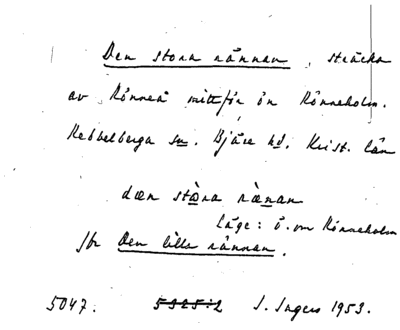 Den stora rännan, sträcka
av Rönneå mittför ön Rönneholm.
Rebbelberga sn. Bjäre hd. Krist. län
dæn stòra rænan
Läge: ö. om Rönneholm
Jfr Den lilla rännan.
5047. 5325:2 I. Ingers 1953.